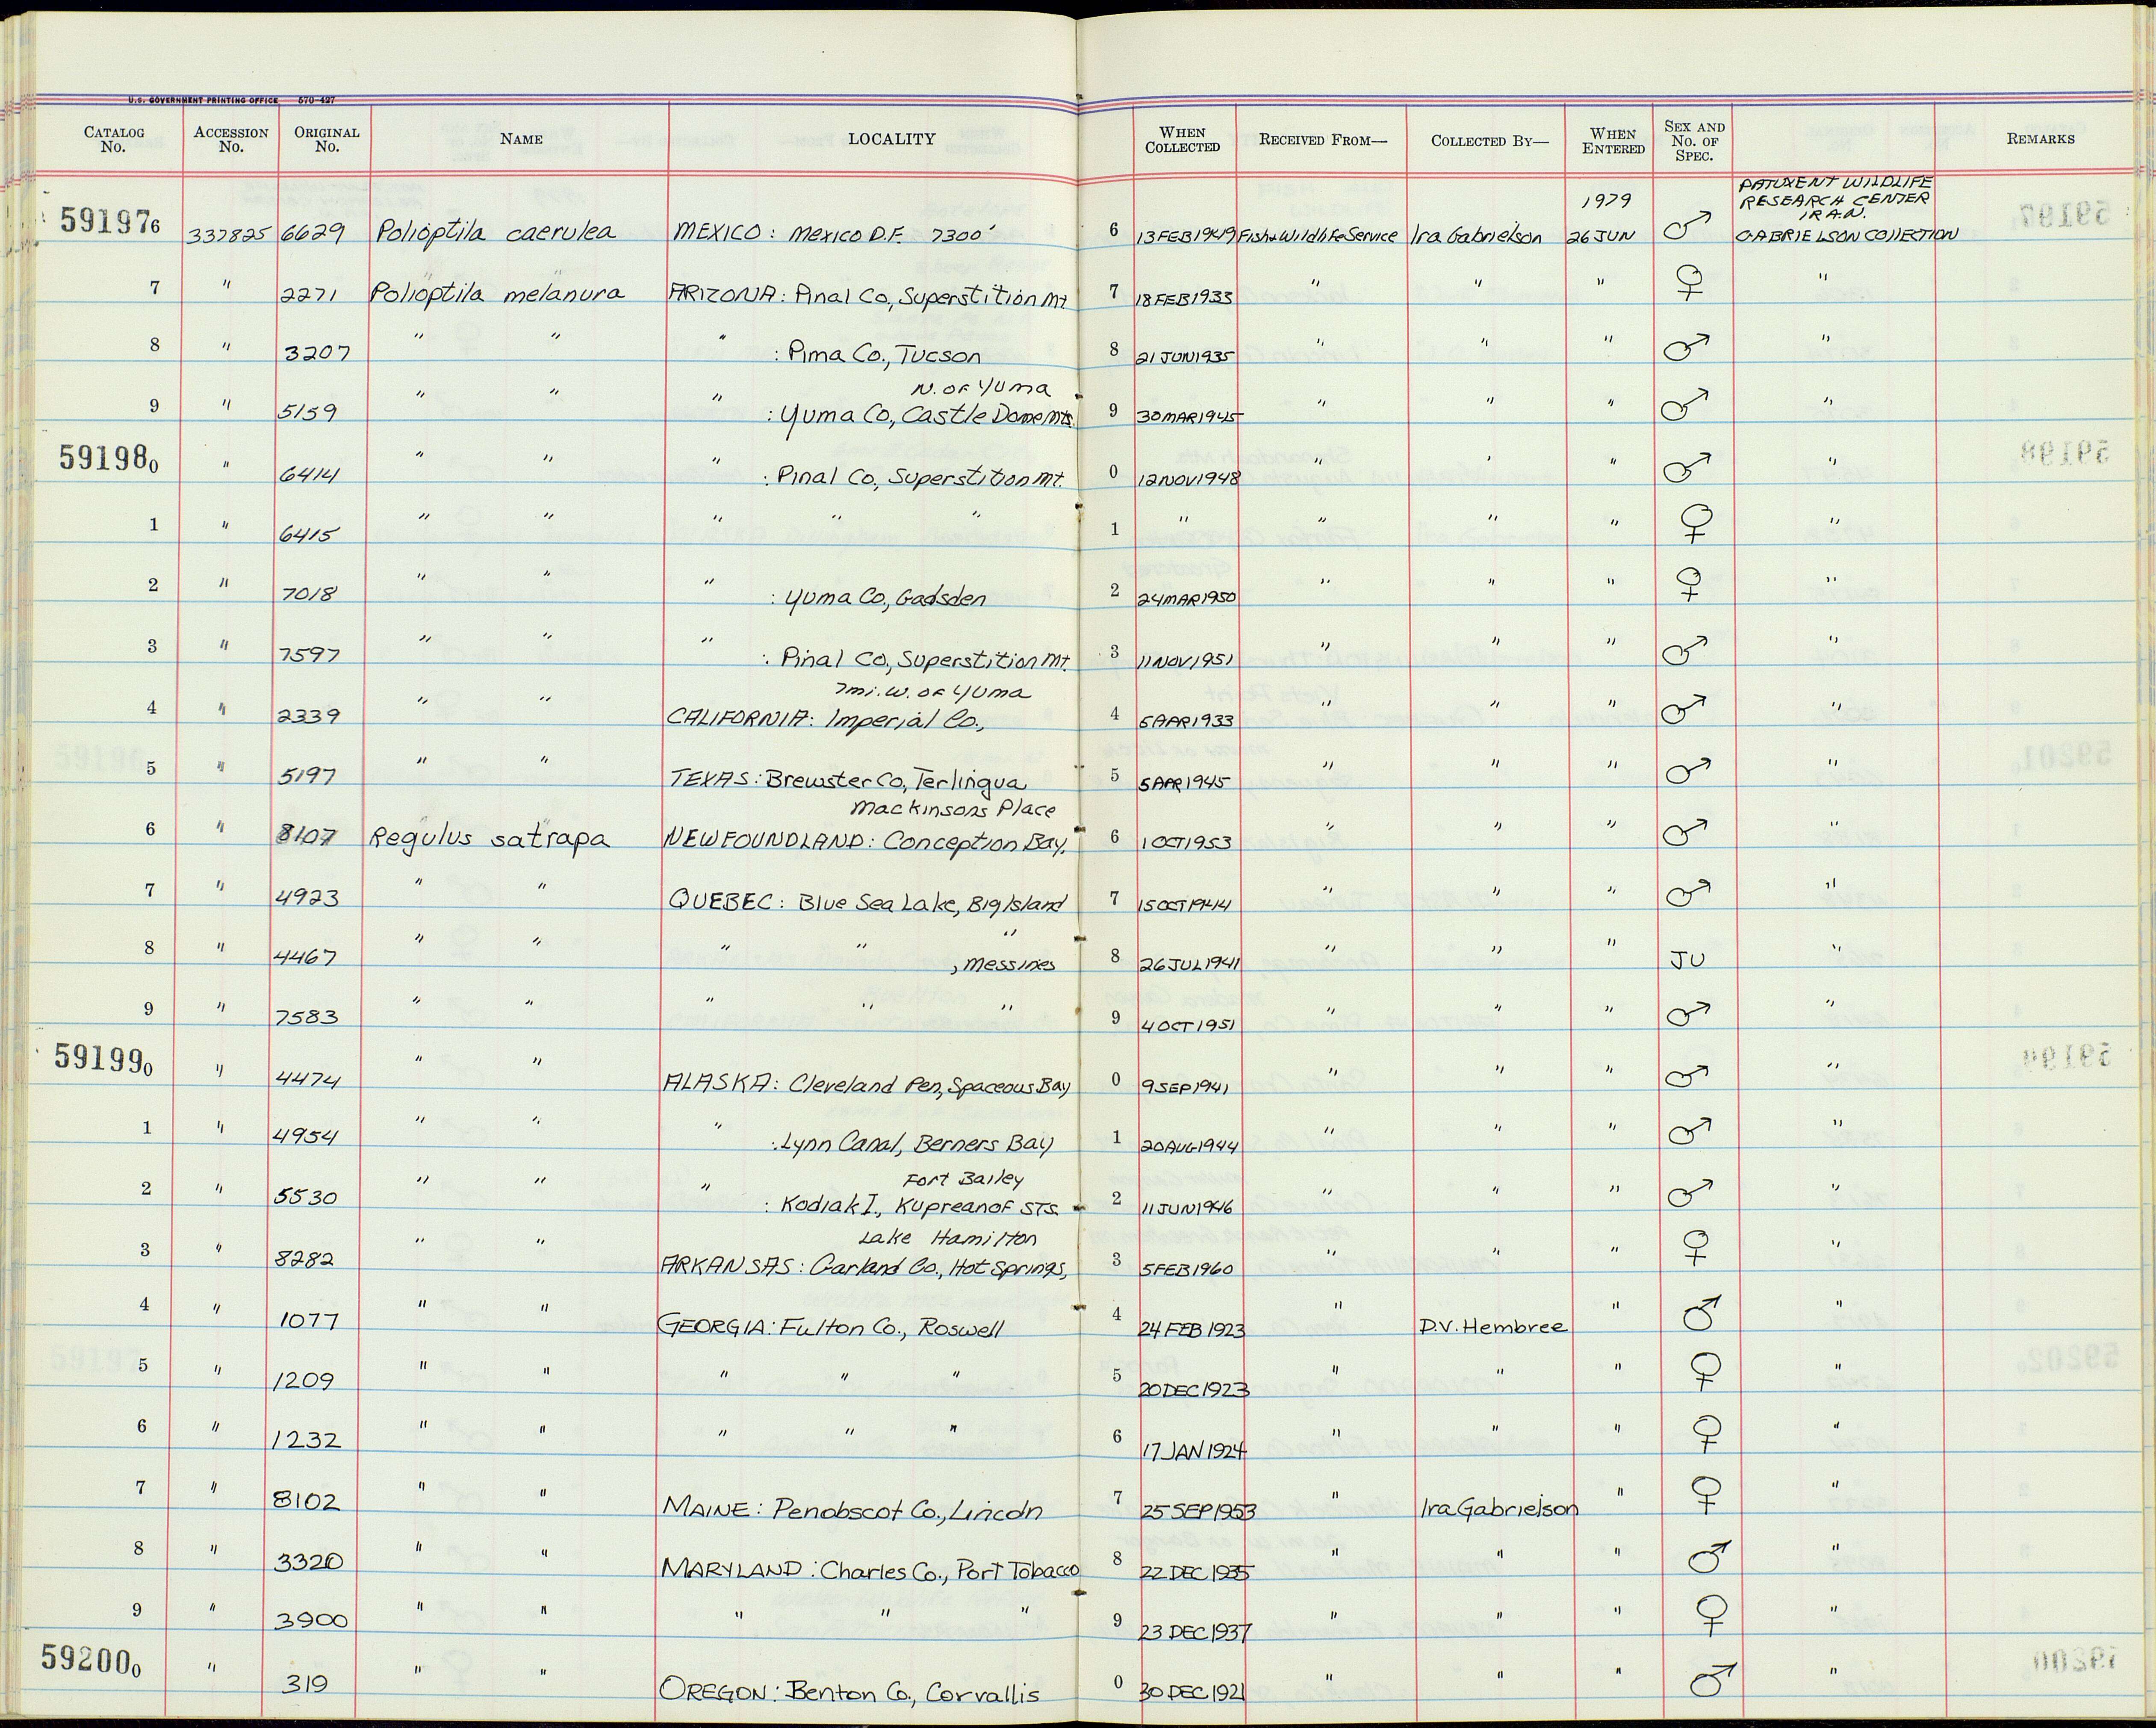 U.S. GOVERNMENT PRINTING OFFICE 570-427
CATALOG No. ACCESSION No. ORIGINAL No. NAME LOCALITY WHEN COLLECTED RECEIVED FROM— COLLECTED BY— WHEN ENTERED SEX AND No. OF SPEC. REMARKS
PATUXENT WILDLIFE
1979 RESEARCH CENTER
IRA.N.
591976 337825 6629 Polioptila caerulea MEXICO: Mexico D.F. 7300' 6 13 FEB 1949 Fish & Wildlife Service Ira Gabrielson 26 JUN ♂ GABRIELSON COllECTION
7 " 2271 Polioptila melanura ARIZONA: Pinal Co, Superstition Mt 7 18 FEB 1933 " " " ♀ "
8 " 3207 " " " : Pima Co., Tucson 8 21 JUN 1935 " " " ♂ "
N. OF YUMA
9 " 5159 " " " : Yuma Co, Castle Dome Mts. 9 30 MAR 1945 " " " ♂ "
591980 " 6414 " " " : Pinal Co, Superstition Mt. 0 12 NOV 1948 " " " ♂ "
1 " 6415 " " " " " 1 " " " " ♀ "
2 " 7018 " " " : Yuma Co, Gadsden 2 24 MAR 1950 " " " ♀ "
3 " 7597 " " " : Pinal Co, Superstition Mt. 3 11 NOV 1951 " " " ♂ "
7mi. W. OF YUMA
4 " 2339 " " CALIFORNIA: Imperial Co., 4 5 APR 1933 " " " ♂ "
5 " 5197 " " TEXAS: Brewster Co, Terlingua 5 5 APR 1945 " " " ♂ "
Mackinsons Place
6 " 8107 Regulus satrapa NEWFOUNDLAND: Conception Bay, 6 1 OCT 1953 " " " ♂ "
7 " 4923 " " QUEBEC: Blue Sea Lake, Big Island 7 15 OCT 1944 " " " ♂ "
8 " 4467 " " " " " , Messines 8 26 JUL 1941 " " " JU "
9 " 7583 " " " " " 9 4 OCT 1951 " " " ♂ "
591990 " 4474 " " ALASKA: Cleveland Pen, Spaceous Bay 0 9 SEP 1941 " " " ♂ "
1 " 4954 " " " : Lynn Canal, Berners Bay 1 20 AUG 1944 " " " ♂ "
Fort Bailey
2 " 5530 " " " : Kodiak I., Kupreanof STS. 2 11 JUN 1946 " " " ♂ "
Lake Hamilton
3 " 8282 " " ARKANSAS: Garland Co., Hot Springs, 3 5 FEB 1960 " " " ♀ "
4 " 1077 " " GEORGIA: Fulton Co., Roswell 4 24 FEB 1923 " D.V. Hembree " ♂ "
5 " 1209 " " " " " 5 20 DEC 1923 " " " ♀ "
6 " 1232 " " " " " 6 17 JAN 1924 " " " ♀ "
7 " 8102 " " MAINE: Penobscot Co., Lincoln 7 25 SEP 1953 " Ira Gabrielson " ♀ "
8 " 3320 " " MARYLAND: Charles Co., Port Tobacco 8 22 DEC 1935 " " " ♂ "
9 " 3900 " " " " " 9 23 DEC 1937 " " " ♀ "
592000 " 319 " " OREGON: Benton Co., Corvallis 0 30 DEC 1921 " " " ♂ "